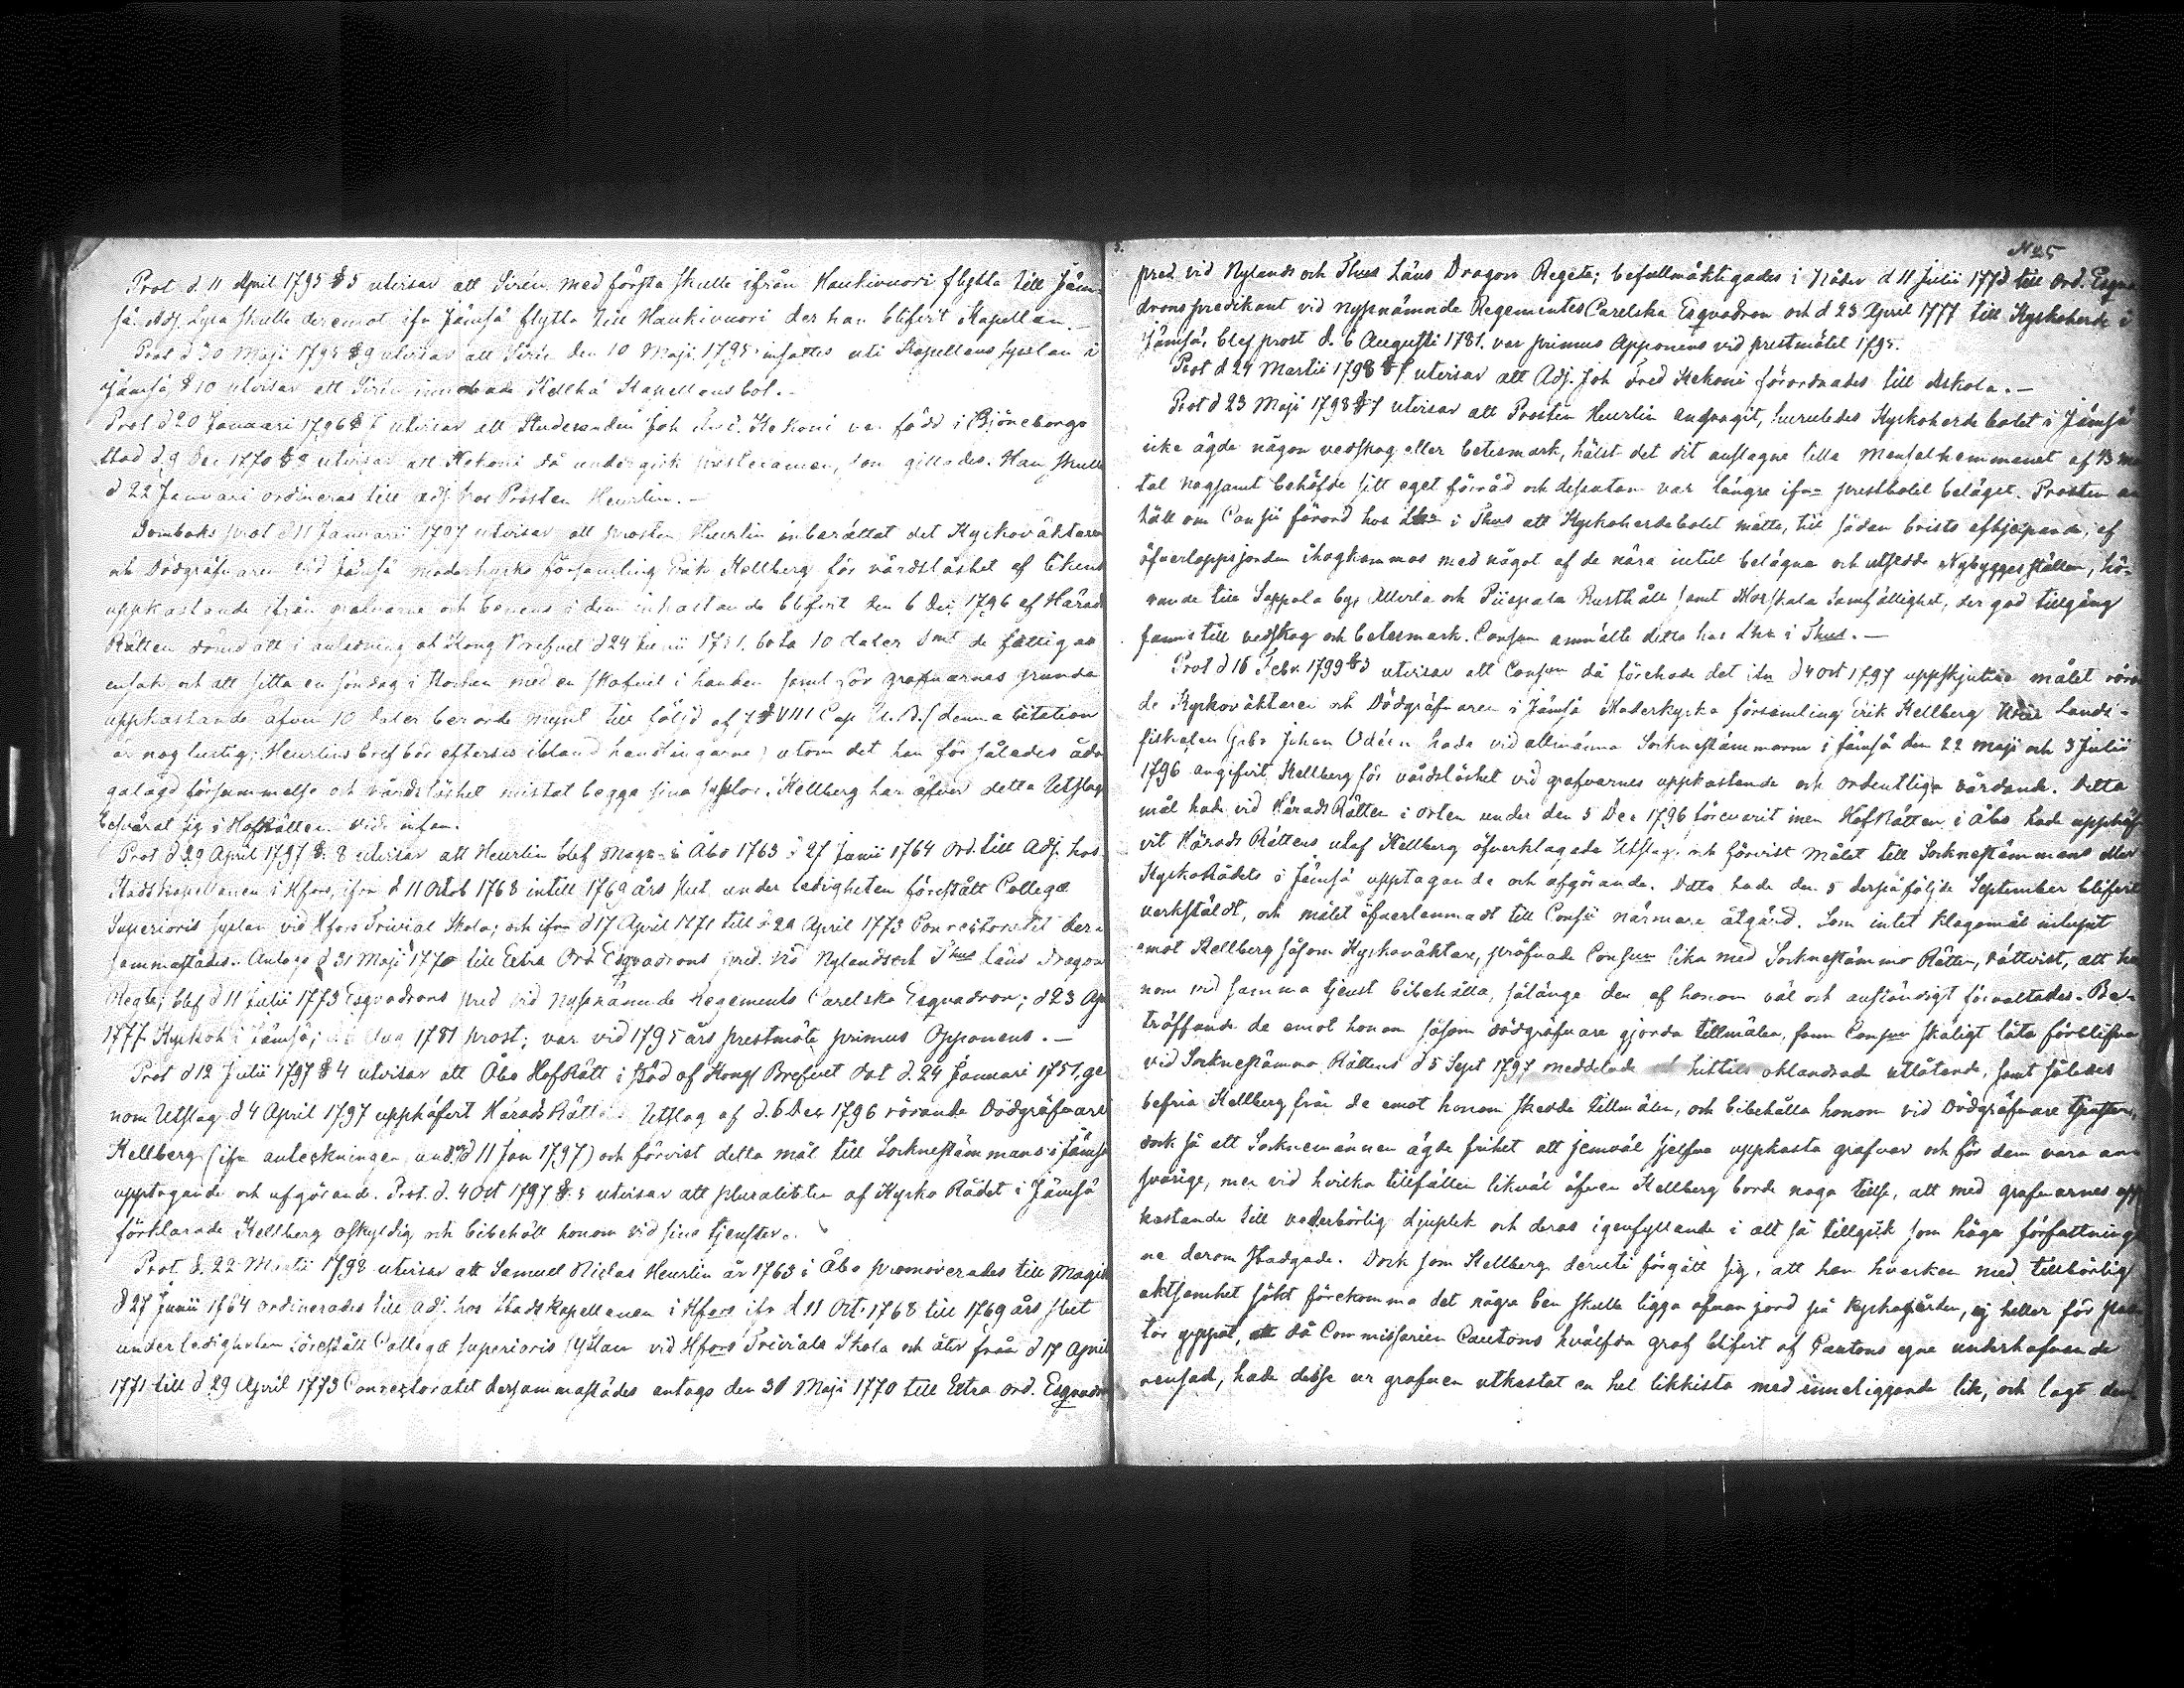 Prot d. 11 April 1795 § 5 utvisar att Sirén med första skulle ifrån Haukivuori flytta till Jäm-
sä. Adj. Lyra skulle deremot ifn Jämsä flytta till Haukivuori der han blifvit Kapellan.-
Prot d 30 Maji 1795 § 9 utvisar att Sirén den 10 Maji 1795 insattes uti Kapellans sysslan i
Jämsä § 10 utvisar att Sirén Kapellansbol.-
Prot d 20 Januari 1796 § 7 utvisar att Studeranden Joh Fred. Kekoni var född i Björneborgs
stad d. 9 Dec 1770 § 9 utvisar att Kekoni då undergick prestexamen, som gillades. Han skulle
d 22 Januari ordineras till adj hos Prosten Heurlin.-
Domboks prot d 11 Januarii 1797 utvisar att prosten Heurlin inberättat det Kyrkoväktaren
och Dödgräfvaren vid Jämsä moderkyrko församling Erik Hellberg för vårdslöshet af likens
uppkastande ifrån grafvarne och benens i dem inkastande blifvit den 6 Dec 1796 af Härads
Rätten dömd att i anledning af Kong Brefvet d 24 1751. bota 10 daler Smt de fattigas
ensak och att sitta en söndag i stocken med en skofvel i handen samt för grafvarnes grunda
uppkastande äfven 10 daler berörde mynt till följd af 7 § VIII Cap (denna citation
är nog lustig; Heurlins bref bör efterses ibland handlingarne) utom det han för således åda-
galagd försummelse och vårdslöshet mistat begge sina sysslor. Hellberg har öfver detta Utslag
besvärat sig i HofRätten vide infra.
Prot d 29 April 1797 §. 8 utvisar att Heurlin blef Magr i Åbo 1763 d 27 Junii 1764 ord. till Adj. hos
StadsKapellanen i Hfors, ifrn d 11 Octob 1768 intill 1769 års slut under ledigheten förestått Collegæ
Superioris syslan vid Hfors Trivial Skola; och ifrn d 17 April 1771 till d 29 April 1773 Conrectoratet der-
sammastädes. Antogs d 31 Maji 1770 till Extra Ord Esqvadrons pred. vid Nylands och Thus läns Dragon
Regte; blef d 11 Julii 1773 Esqvadrons pred vid nyssnämnde Regements Carelska Esqvadron; d 23 Apr
1777 Kyrkoh i Jämsä; Aug 1781 prost; var vid 1795 års prestmöte primus Opponens.-
Prot d 12 Julii 1797 § 4 utvisar att Åbo HofRätt i stöd af Kongl Brefvet dat d. 24 Januari 1751, ge-
nom Utslag d 4 April 1797 upphäfvit HäradsRättens Utslag af d. 6 Dec 1796 rörande Dödgräfvare
Hellberg (ifr anteckningen under d 11 Jan 1797) och förvist detta mål till Sockenstämmans i Jämsä
upptagande och afgörande. Prot. d. 4 Oct 1797 §. 5 utvisar att pluraliteten af Kyrko Rådet i Jämsä
förklarade Hellberg oskyldig och bibehöll honom vid sine tjenster.
Prot. d. 22 Martii 1798 utvisar att Samuel Niclas Heurlin år 1763 i Åbo promoverades till Magist
d 27 Junii 1764 ordinerades till adj. hos Stads Kapellanen i Hfors ifr d 11 Oct. 1768 till 1769 års slut
under ledigheten förestått Collegæ Superioris sysslan vid Hfors Trivial Skola och åter från d 17 April
1771 till d 29 April 1773 Conrectoratet dersammastädes antogs den 31 Maji 1770 till Extra ord. Esqvadrons
5.
N 25
pred. vid Nylands och Thus Läns Dragon Regete; befullmäktigades i Nåder d 11 Julii 1773 till ord. Esqva-
drons predikant vid nyssnämnde Regementes Carelska Esqvadron och d 23 April 1777 till Kyrkoherde i
Jämsä, blef prost d. 6 Augusti 1781. var primus Opponens vid prestmötet 1795.
Prot d 24 Martii 1798 § 7 utvisar att Adj. Joh Fred Kekoni förordnades till Askola.-
Prot d 23 Maji 1798 § 7 utvisar att Prosten Heurlin andragit, huruledes Kyrkoherde bolet i Jämsä
icke ägde någon vedskog eller betesmark, hälst det dit anslagne lilla Mensal hemmanet af 1/3 man
tal nogsamt behöfde sitt eget förråd och dessutan var längre ifrn prestbolet beläget. Prosten an-
höll om Consii förord hos Lhn i Thus att Kyrkoherdebolet måtte, till sådan brists afhjelpande, af
öfverloppsjorden ihogkommas med något af de nära intill belägna och utsedde Nybyggesställen, hö-
rande till Seppola by, Alverla och Piiepala Rusthåll samt Korskala samfällighet, der god tillgång
fanns till vedskog och betesmark. Consum anmälte detta hos Lhn i Thus.-
Prot d 16 Febr. 1799 § 3 utvisar att Consum då förehade det ifrn d 4 Oct 1797 uppskjutne målet röran-
de Kyrkoväktaren och Dödgräfvaren i Jämsä Moderkyrko församling Erik Hellberg Lands-
fiskalen Johan Odén hade vid allmänna Sockenstämmorna i Jämsä den 22 Maji och 3 Julii
1796 angifvit Hellberg för vårdslöshet vid grafvarnes uppkastande och ordentliga vårdande. Detta
mål hade vid HäradsRätten i orten under den 5 Dec 1796 förevarit men HofRätten i Åbo hade upphäf-
vit Härads Rättens utaf Hellberg öfverklagade Utslag och förvist målet till Sockenstämmans eller
Kyrkorådets i Jämsä upptagande och afgörande. Detta hade den 5 derpåföljde September blifvit
verkstäldt, och målet öfverlemnadt till Consii närmare åtgärd. Som intet klagomål inlupit
emot Hellberg såsom Kyrkoväktare, pröfvade Consum lika med Sockenstämmo Rätten, rättvist, att ho-
nom vid samma tjenst bibehålla, sålänge den af honom väl och anständigt förvaltades. Be-
träffande de emot honom såsom dödgräfvare gjorda tillmälen, fann Consum skäligt låta förblifva
vid Sockenstämmo Rättens d 5 Sept 1797 meddelade hittills oklandrade utlåtande, samt således
befria Hellberg från de emot honom skedde tillmälen, och bibehålla honom vid Dödgräfvare tjensten,
dock så att Sockenmännen ägde frihet att jemväl sjelfve uppkasta grafvar och för dem vara an-
svarige, men vid hvilka tillfällen likväl äfven Hellberg borde noga tillse, att med grafvarnes upp-
kastande till vederbörlig djuplek och deras igenfyllande i allt så tillgick som höga författningar-
ne derom stadgade. Dock som Hellberg deruti förgått sig, att han hvarken med tillbörlig
aktsamhet sökt förekomma det några ben skulle ligga ofvan jord på kyrkogården, ej heller för
tör uppgett, då Commissarien Cautons hvälfda graf blifvit af Cautons egne underhafvande
rensad, hade desse ur grafven utkastat en hel likkista med inneliggande lik, och lagt den